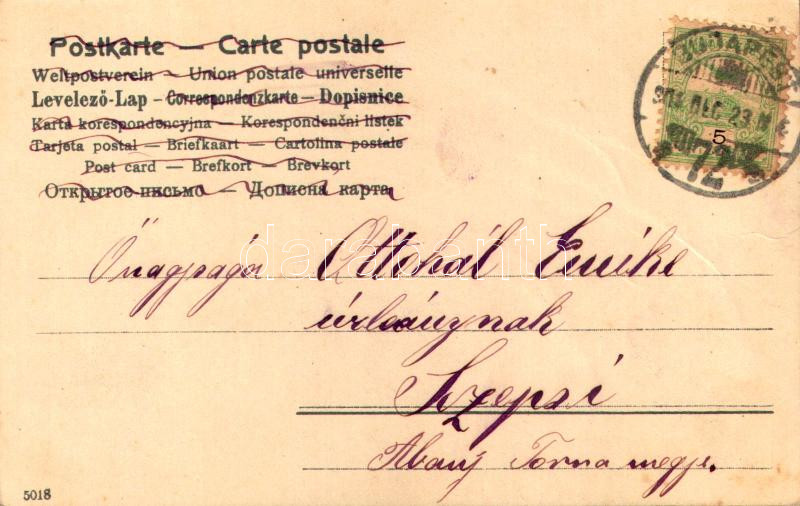 Postkarte — Carte postale
Weltpostverein — Union postale universelle
Levelező-Lap — Correspondenzkarte — Dopisnice
Karta korespondencyjna — Korespondenční lístek
Tarjeta postal — Briefkaart — Cartolina postale
Post card — Brefkort — Brevkort
Открытое письмо — Дописна карта
BUDAPEST
DEC 23
5
72
darabanth
Őnagysága Ottohál Emike
úrleánynak
Szepsi
Abauj Torna megye.
5018